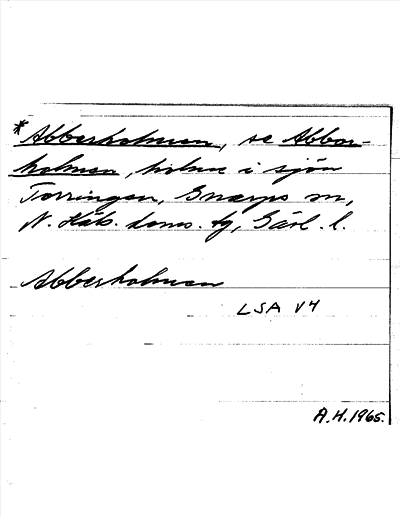 *Abberholmen, se Abbor-
holmen, holme i sjön
Torringen, Gnarps sn,
N. Häls. doms. tg, Gävl. l.
Abberholmen
LSA V4
A.H. 1965.